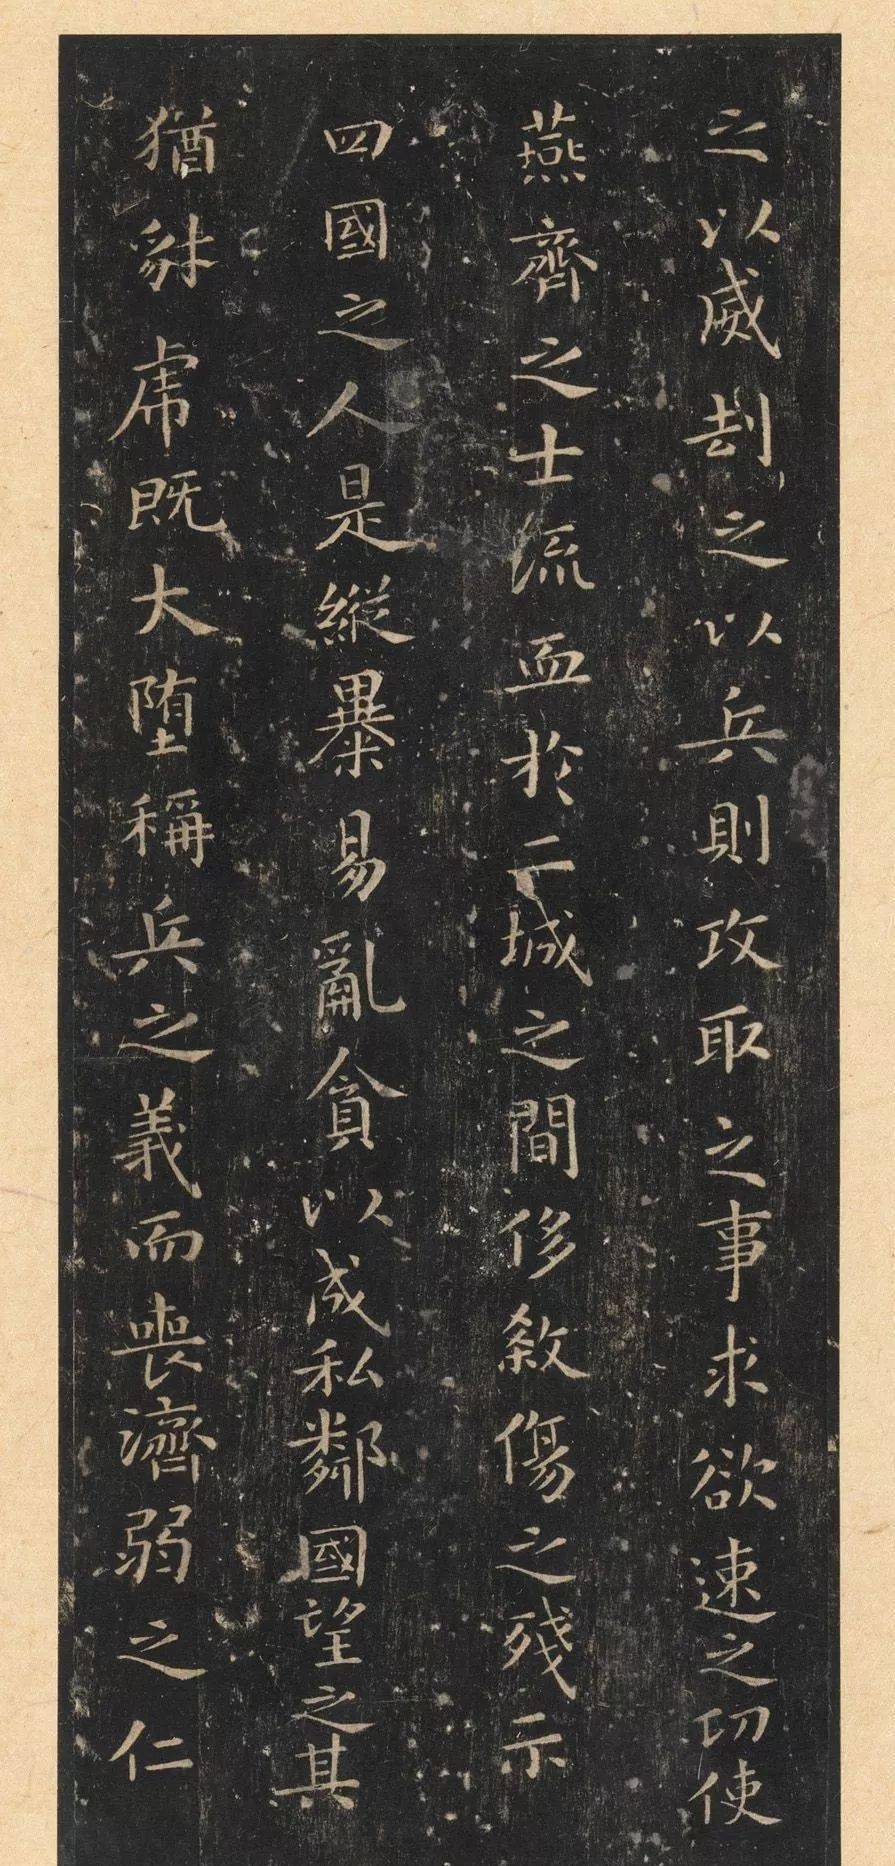 之以威刼之以兵則攻取之事求欲速之功使
燕齊之士流血於二城之間侈殺傷之殘示
四國之人是縱暴易亂貪以成私鄰國望之其
猶豺虎既大墮稱兵之義而喪濟弱之仁